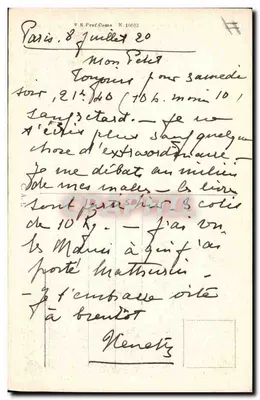 Paris. 8 Juillet 20
Mon Petit
Toujours pour samedi
soir, 21h40 (10h. moin
sauf retard. - je ne
t'écris plus sauf quelque
chose d'extraordinaire -
- je me débat au milieu
de mes malles - les livres
sont partis 3 colis
de 10 Kg. - j'ai vu
les à qui j'ai
porté
- Je t'embrasse vite
à bientot